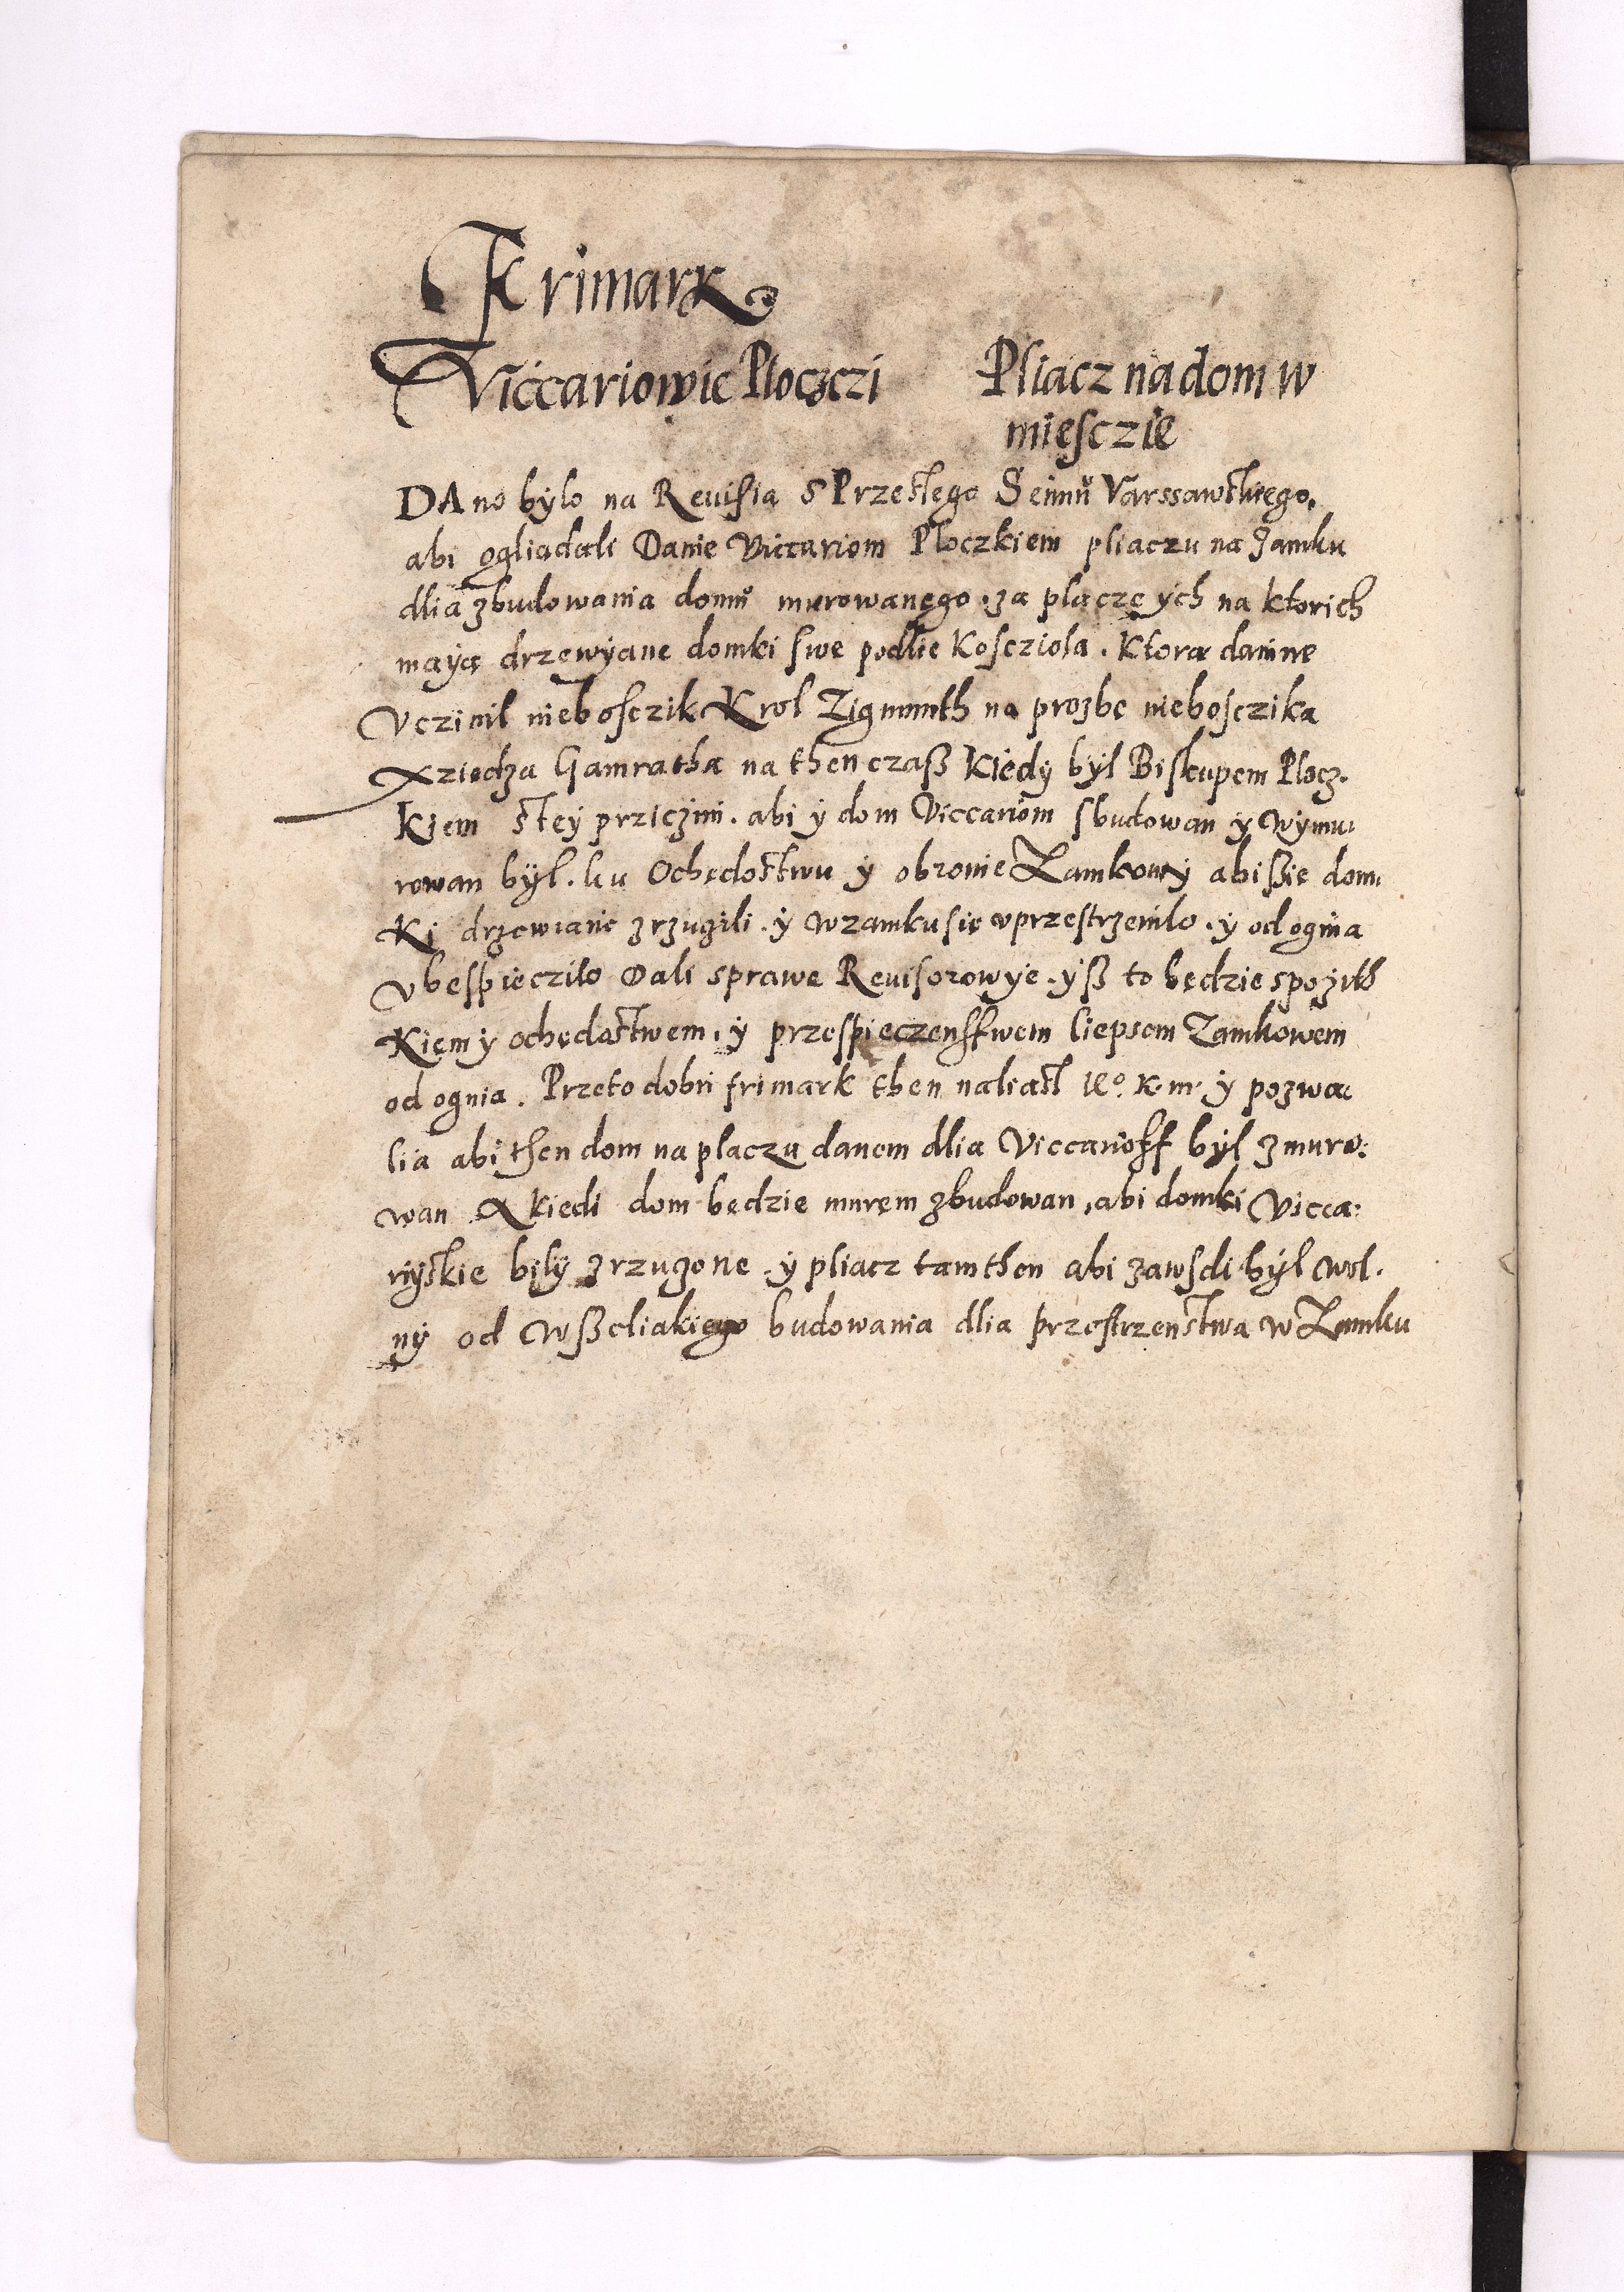 Frimark
Viccariowie Ploczczi Pliacz na dom w
miesczie
DAno bylo na Reuisia s Przeslego Seimu Varssawskiego,
abi ogliadali Danie Viccariom Ploczkiem pliaczu na Zamku
dlia zbudowania domu murowanego . za placze ych na ktorich
mayą drzewyane domki swe podlie Kosciola . Ktorą daninę
Vczinil nieboszczik Krol Zigmunth na prozbę nieboszczika
Xziędza Gamratha na then czasz kiedy był Biskupem Plocz.
kiem s tey przicżini . abi y dom Viccariom sbudowan y wymu:
rowan był . ku Ochędostwu y obronie Zamkowey abi ssie dom:
ki drzewiane zrzuzili . y w zamku się vprzestrzenilo . y od ognia
vbespieczilo Dali sprawę Reuisorowye . ysz to będzie s pozith
kiem y ochędostwem, y przespieczenstwem liepsem Zamkowem
od ognia . Przeto dobri frimark then naliasl Ie.º K. m. y pozwa:
lia abi then dom na placzu danem dlia Viccarioff był zmuro:
wan A kiedi dom będzie murem zbudowan, abi domki Vicca:
ryskie były zrzuzone . y pliacz tamthen abi zawsdi był wol.
ny od wszeliakiego budowania dlia przestrzenstwa w Zamku